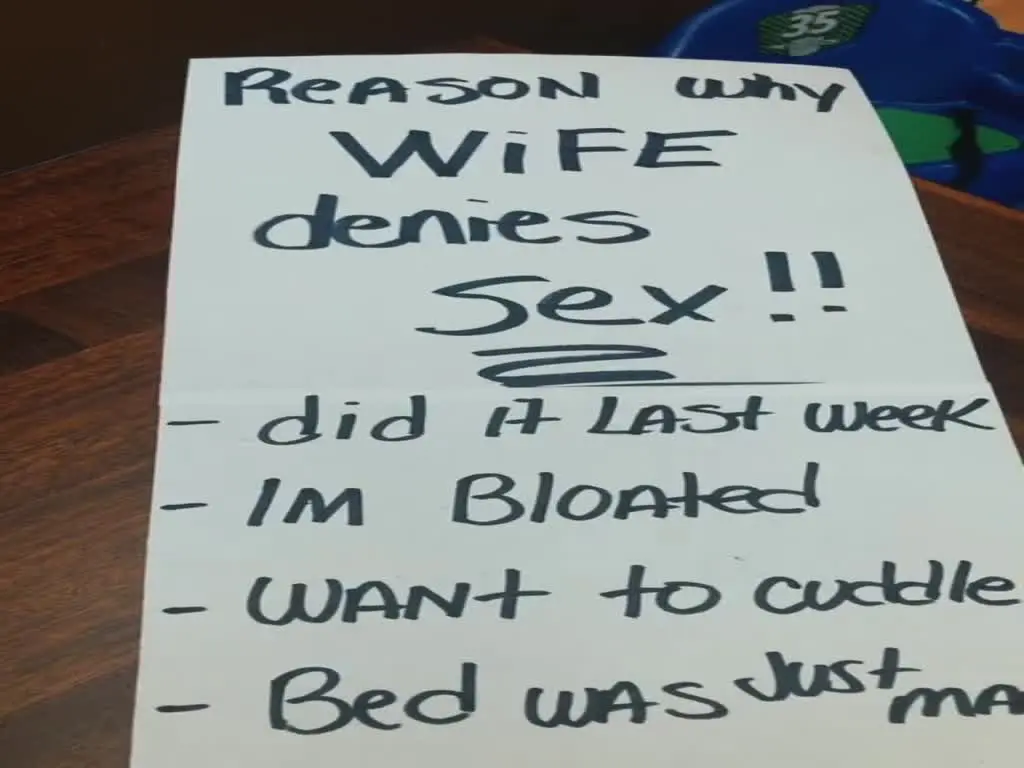 35
REASON why
WiFE
denies
Sex!!
- did it LAST week
- IM BloAted
- WANt to cuddle
- Bed WAS Just